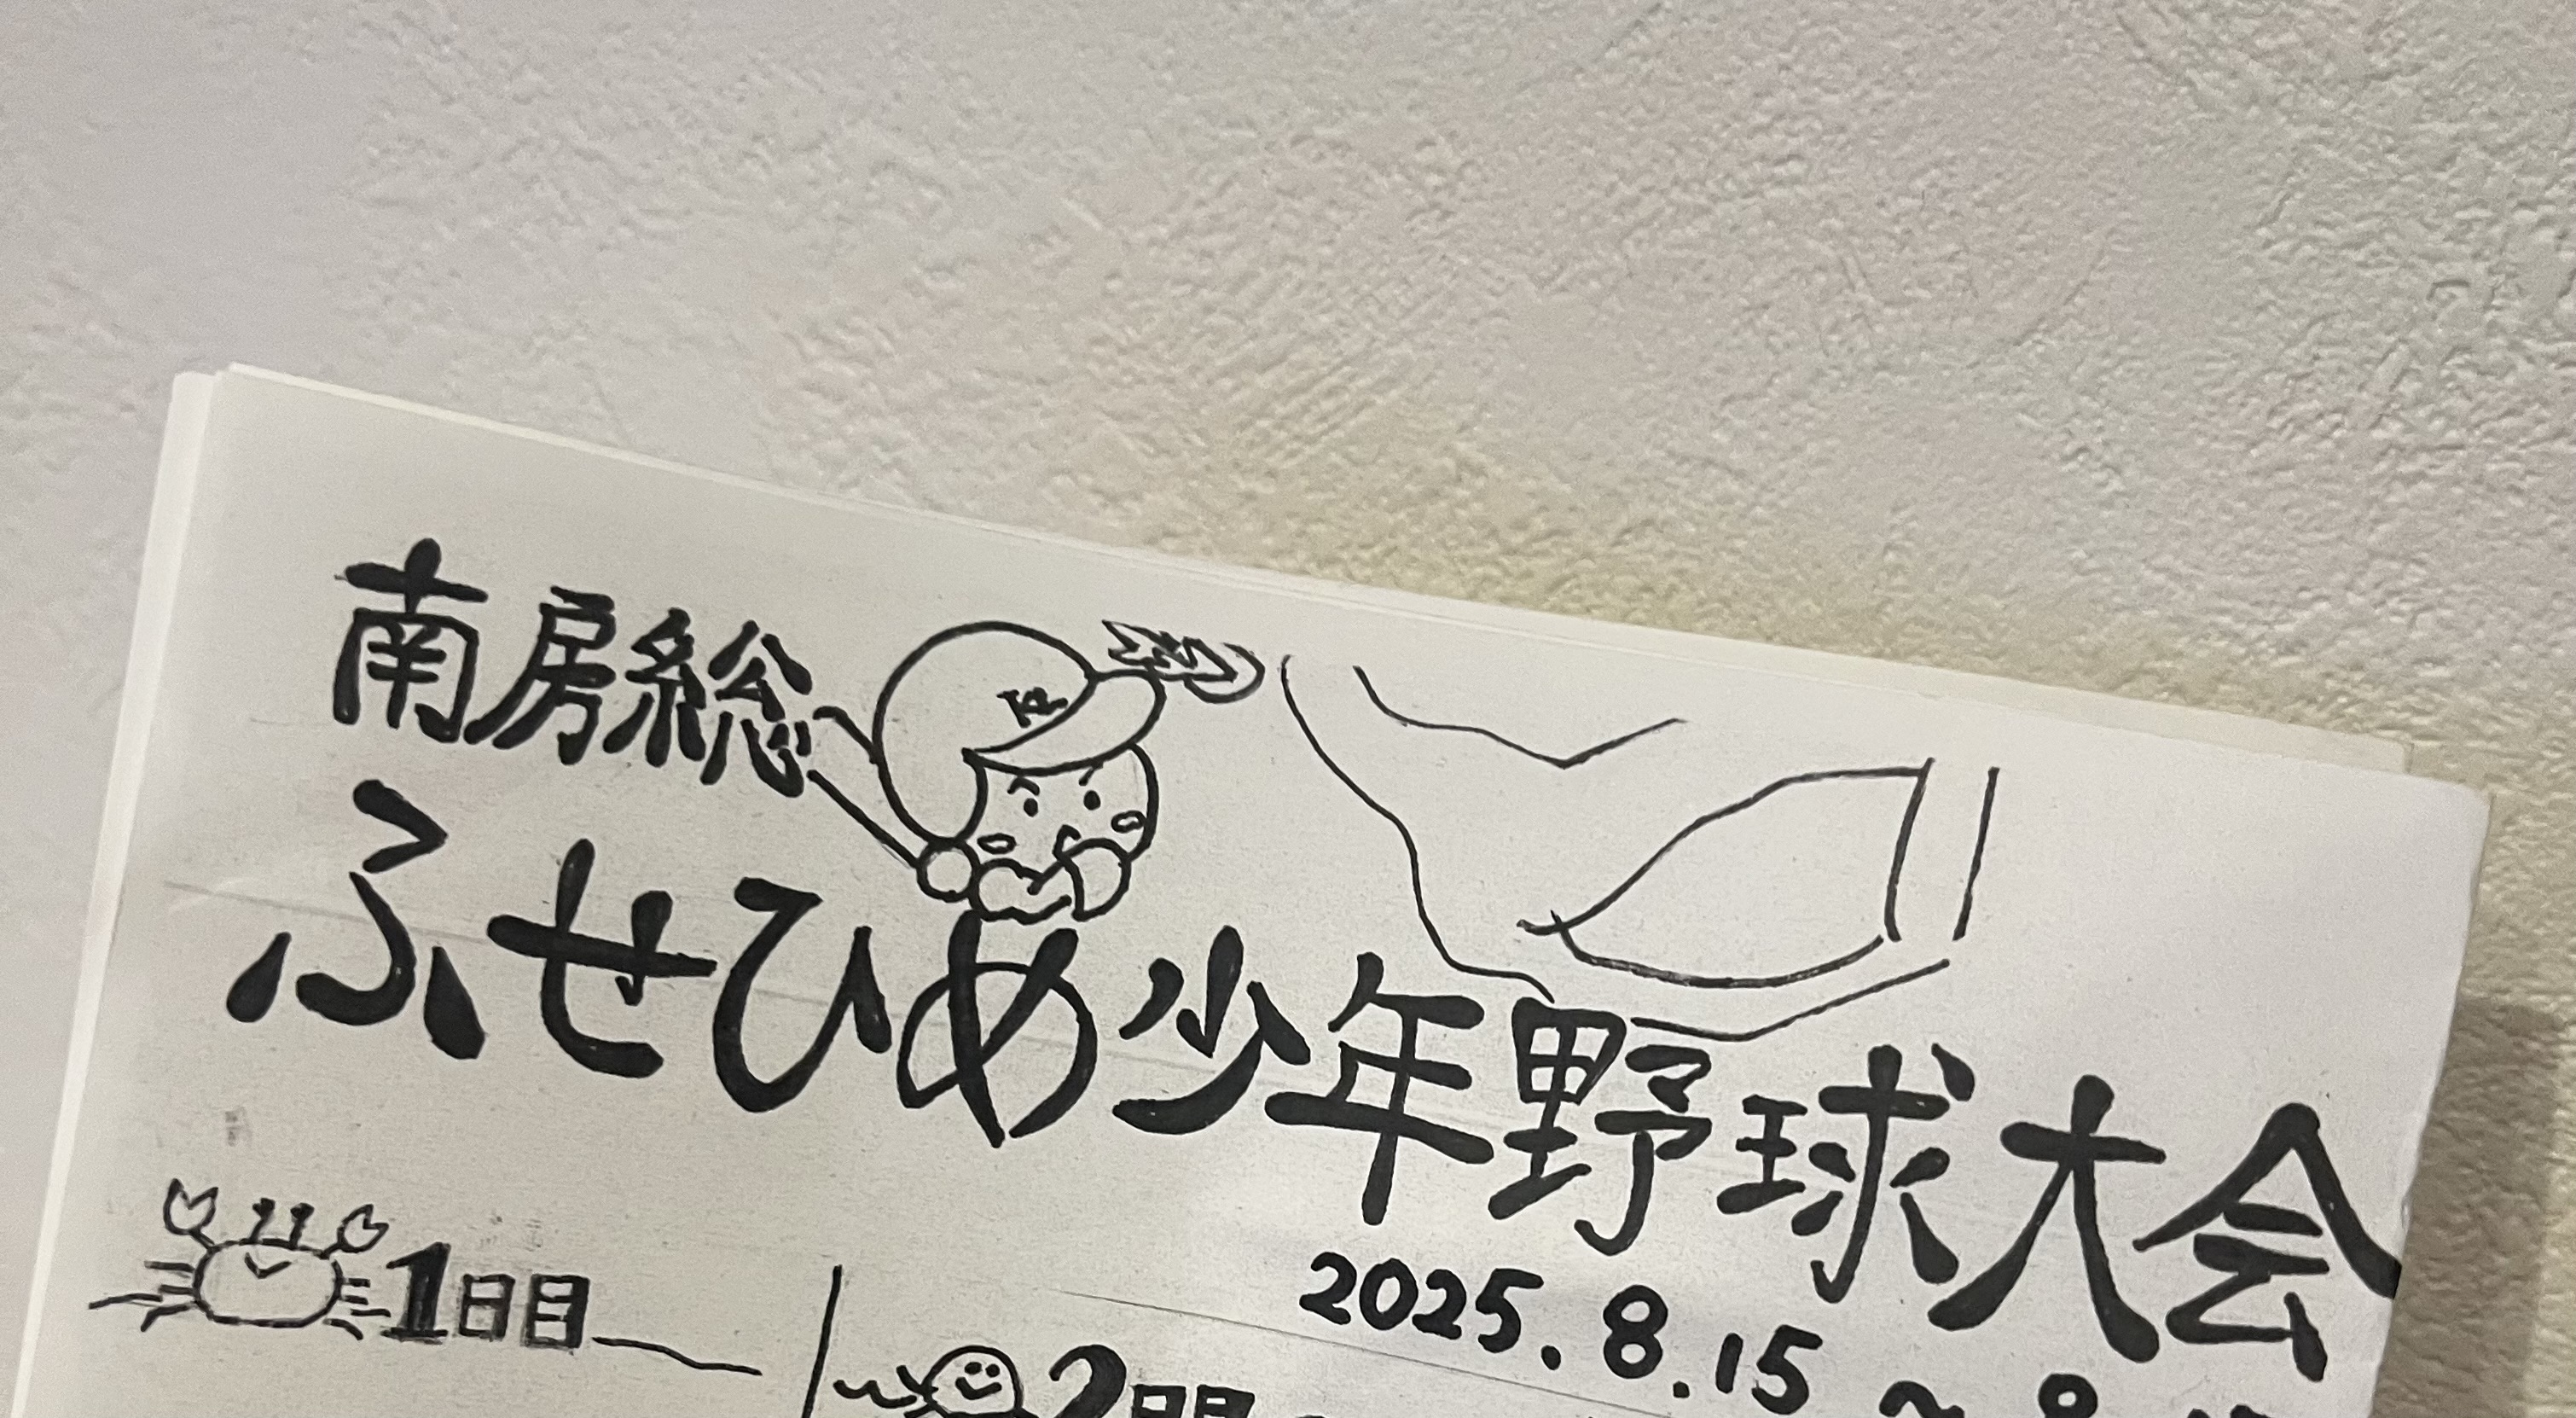 南房総
ふせひめ少年野球大会
2025.8.15 ~ 8.
1日目
2日目